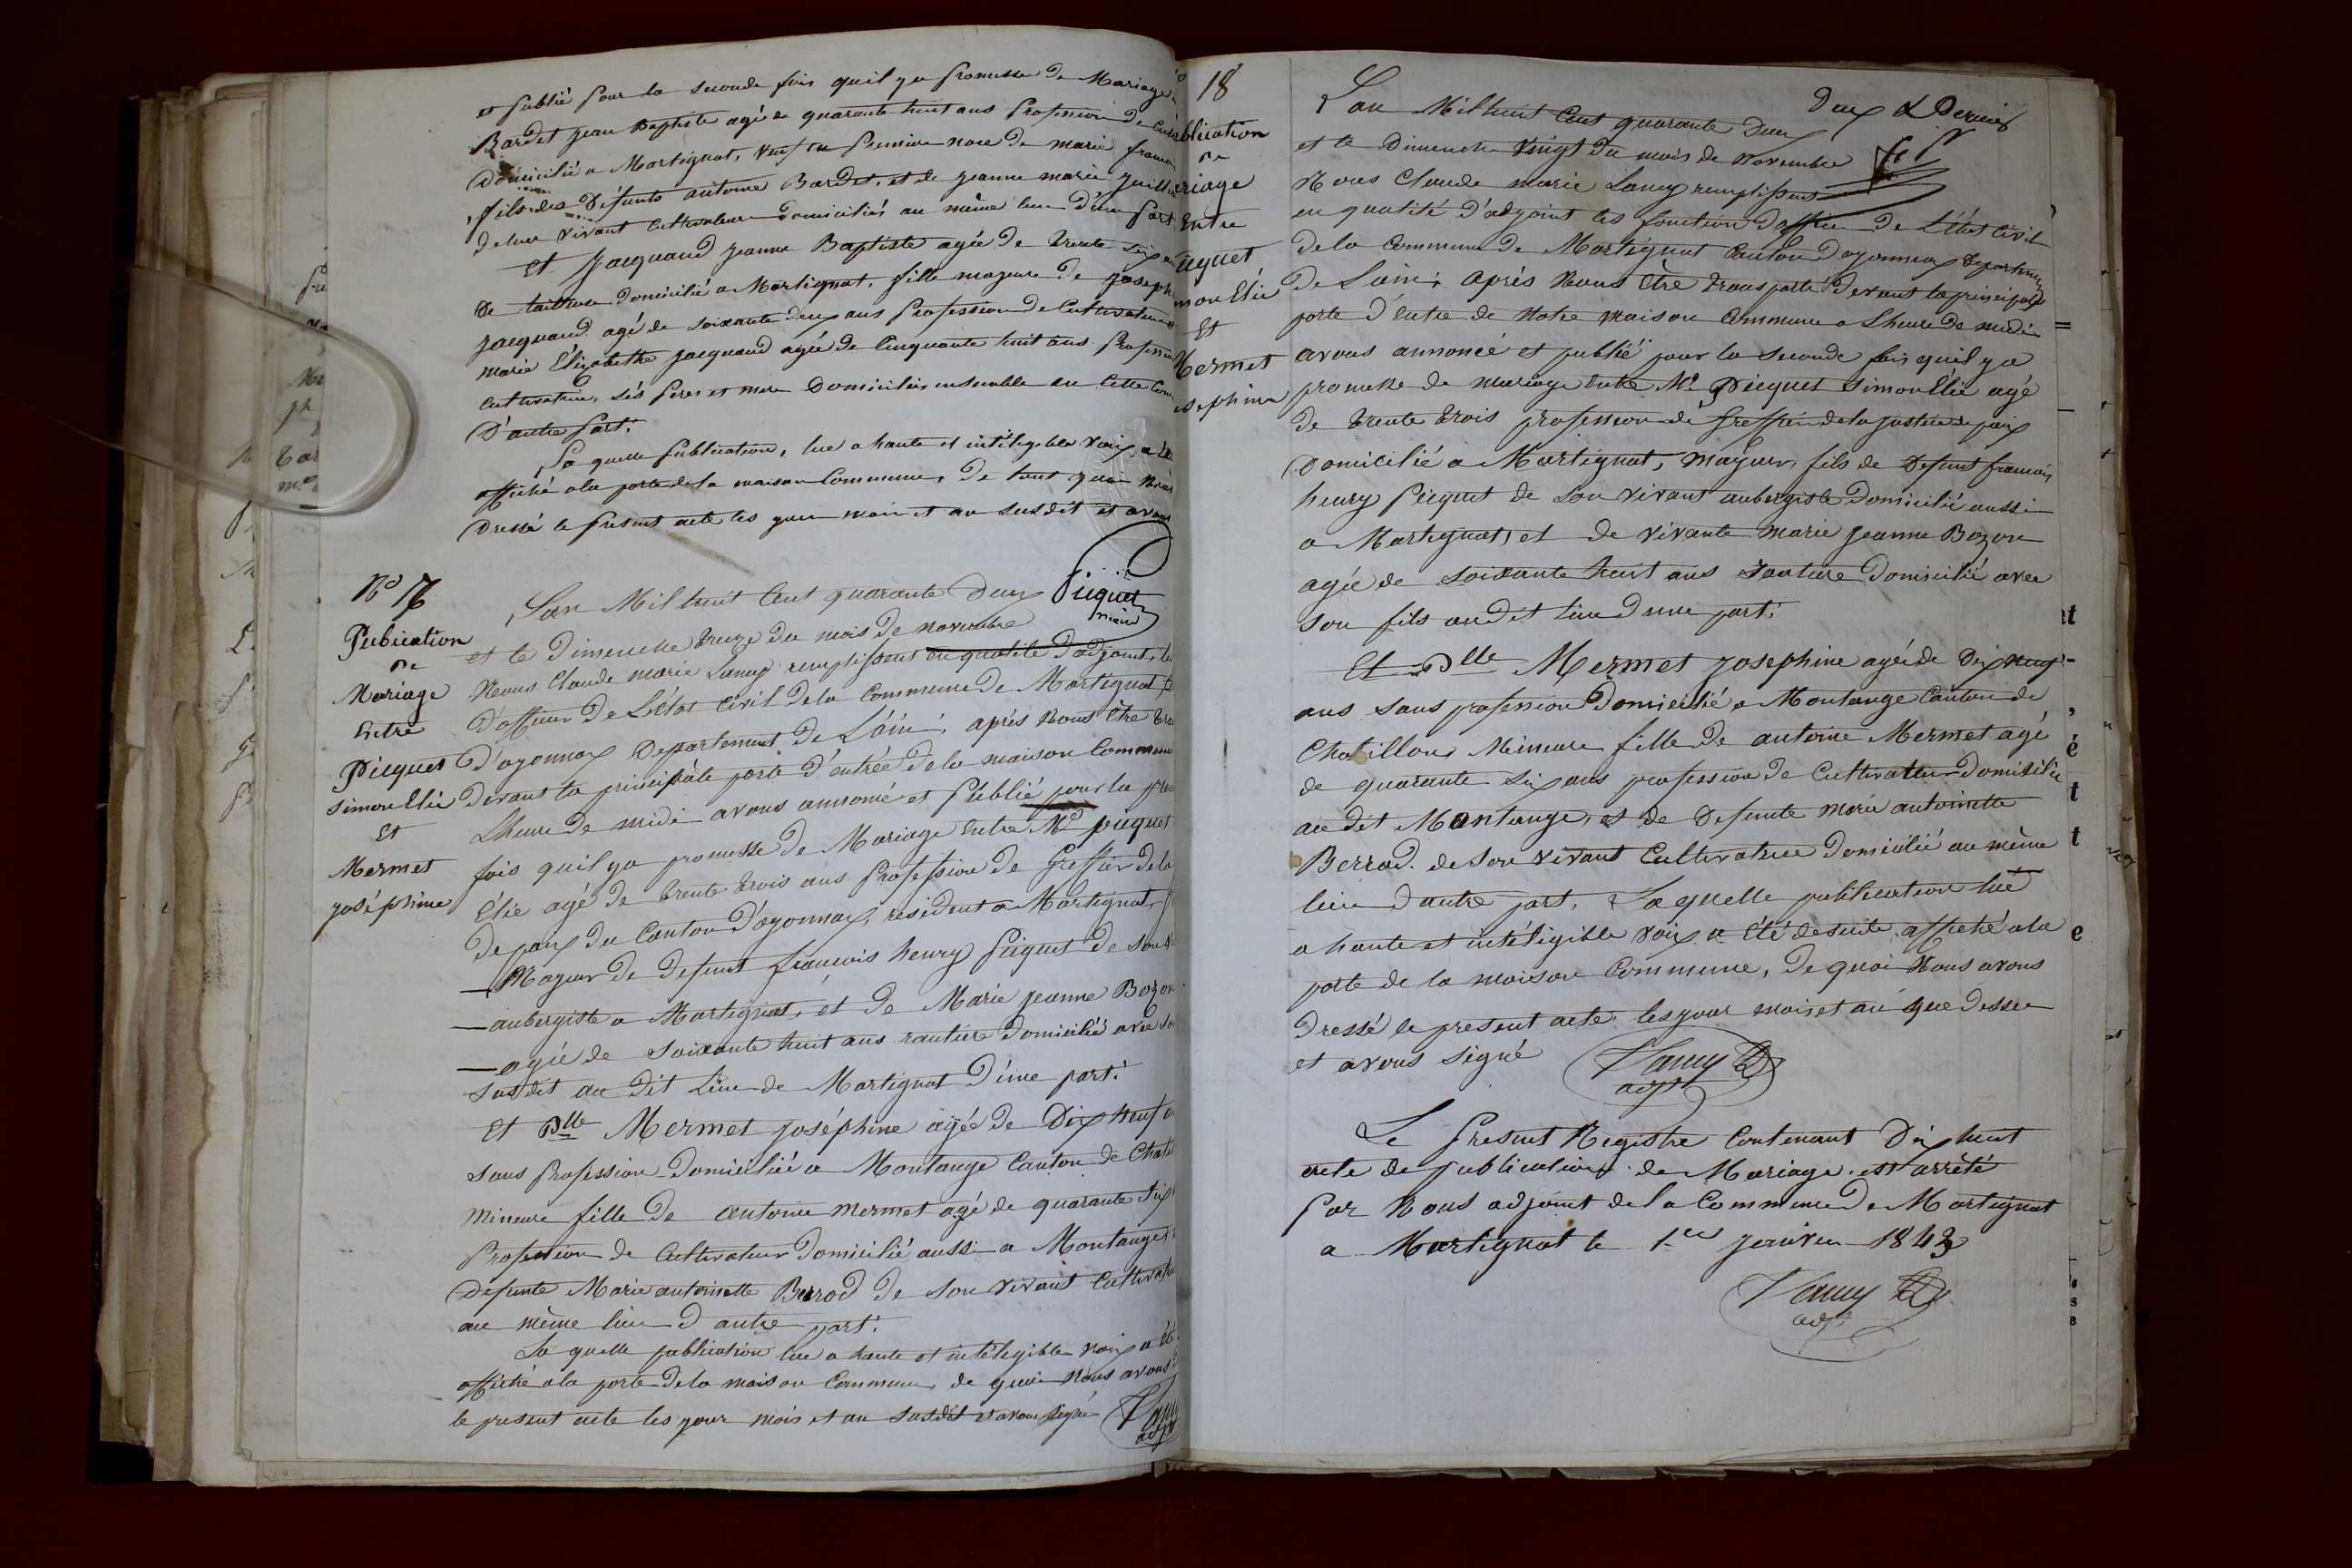 et publié pour la seconde fois quil ya promesse de Mariage
Bardet jean Baptiste agé de quarante huit ans Profession de
Domicilié a Martignat, veuf en premiere noce de marie
fils des Défunts antoine Bardet, et de jeanne marie
de leur vivant Cultivateur domiciliés au même lieu d'une part
Et Jacquand jeanne Baptiste agée de trente six
De tailleuse domicilié a Martignat, fille majeure de joseph
jacquand agé de soixante deux ans Profession de Cultivateur
marie Elizabethe jacquand agée de Cinquante huit ans Profession
Cultivatrice, sés peres et mere Domiciliés ensemble en Cette
D'autre part.
La quelle publication, lue a haute et intéligible voix, a
affiché a la porte de la maison Commune, De tout quoi
Dressé le present acte les jour mois et an susdit et avons
Picquet
maire
No 17
Publication
de
Mariage
Entre
Picquet
simon Elie
Et
Mermet
joséphine
Lan Mil huit Cent quarante Deux
et le Dimenche treize du mois de novembre
Nous Claude marie Lanuy remplissent en qualité d'adjoint, les
D'officier De L'état Civil De la Commune De Martignat
D'oyonnax Département De L'ain; aprés Nous être
Devant la principâle porte D'entrée de la maison Commune
Lheure De midi avons annoncé et publié pour la
fois quil ya promesse De Mariage Entre Mr picquet
Elie agé De trente trois ans Profession De Greffier De la
De paix Du Canton D'oyonnax, résident a Martignat,
Majeur de Defunt francois henry Picquet De son
aubergiste a Martignat, et De Marie jeanne Bozon
agée de soixante huit ans rantiere domicilié avec
susdit au dit Lieu de Martignat D'une part.
Et Dlle Mermet joséphine agée de Dix neuf
sans Profession Domiciliée a Montange Canton de
Mineure fille De antoine mermet agé de quarante six
Profession de Cultivateur Domicilié aussi a Montange,
Defunte Marie antoinette Berrod De son vivant
au même lieu D'autre part.
La quelle publication lue a haute et intéligible voix a été
affiché a la porte de la maison Commune, de quoi Nous avons
le present acte les jour mois et an susdit et avons signé
18
blication
de
riage
Entre
icquet
mon Elie
Et
Mermet
sephine
Deux & Dernier
Lan Mil huit Cent quarante Deux
et le Dimenche Vingt du mois de Novembre
Nous Claude marie Lanuy remplissens
en qualité d'adjoint les fonction d'officier De L'état Civil
De la Commune De Martignat Canton Doyonnax
De Lain; Aprés Nous être transporté devant la principale
porte d'entre de Notre maison Commune a Lheure De midi
avons annoncé et publié pour la seconde fois quil ya
promesse de mariage Entre Mr Picquet simon Elie agé
De trente trois profession de Greffier de la justice de paix
Domicilié a Martignat, Majeur, fils de Defunt francois
henry Picquet de son vivant aubergiste Domicilié aussi
a Martignat, et de vivante marie jeanne Bozon
agée de soixante huit ans rantiere Domicilié avec
son fils au dit lieu d'une part.
Et Dlle Mermet josephine agée de Dix neuf
ans sans profession Domicilié a Montange Canton de
Chatillon, Mineure fille de antoine Mermet agé
de quarante six ans profession De Cultivateur Domicilié
au dit Montange, et de Defunte Marie antoinette
Berrod. de son vivant Cultivatrice Domicilié au même
lieu d'autre part. La quelle publication lué
a haute et intéligible voix a été de suite affiché a la
porte de la maison Commune, De quoi Nous avons
Dressé le present acte les jour mois et an que dessu
et avons signé
Le present Registre Contenant Dix huit
acte de publication de Mariage est arrêté
Par Nous adjoint de la Commune De Martignat
a Martignat le 1er janvier 1843